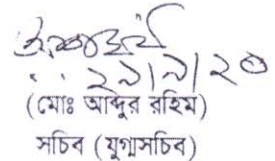 ২৯/৯/২০
(মোঃ আব্দুর রহিম)
সচিব (যুগ্মসচিব)